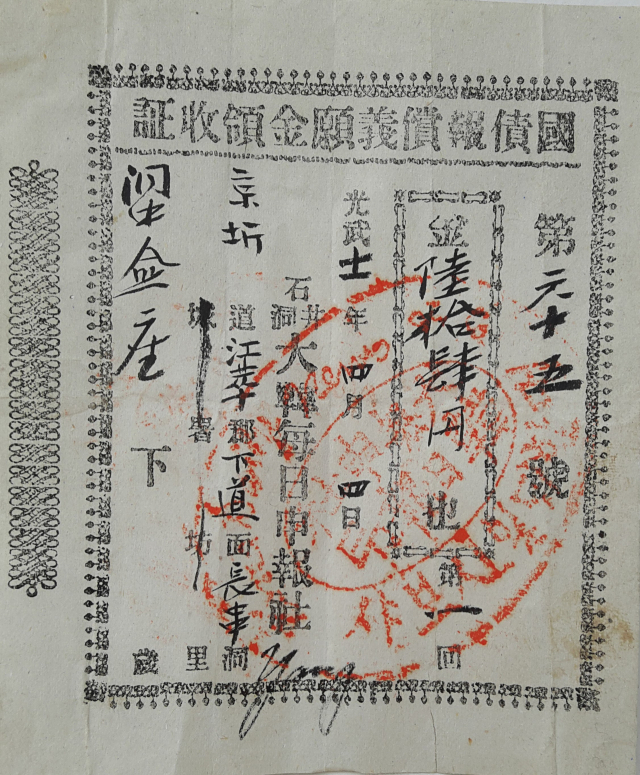 國債報償義願金領收証
第六十五號
金陸拾肆円也
第一回
光武十一年四月四日
大韓每日申報社
京圻道江華郡下道面長串洞里
署坊
座下